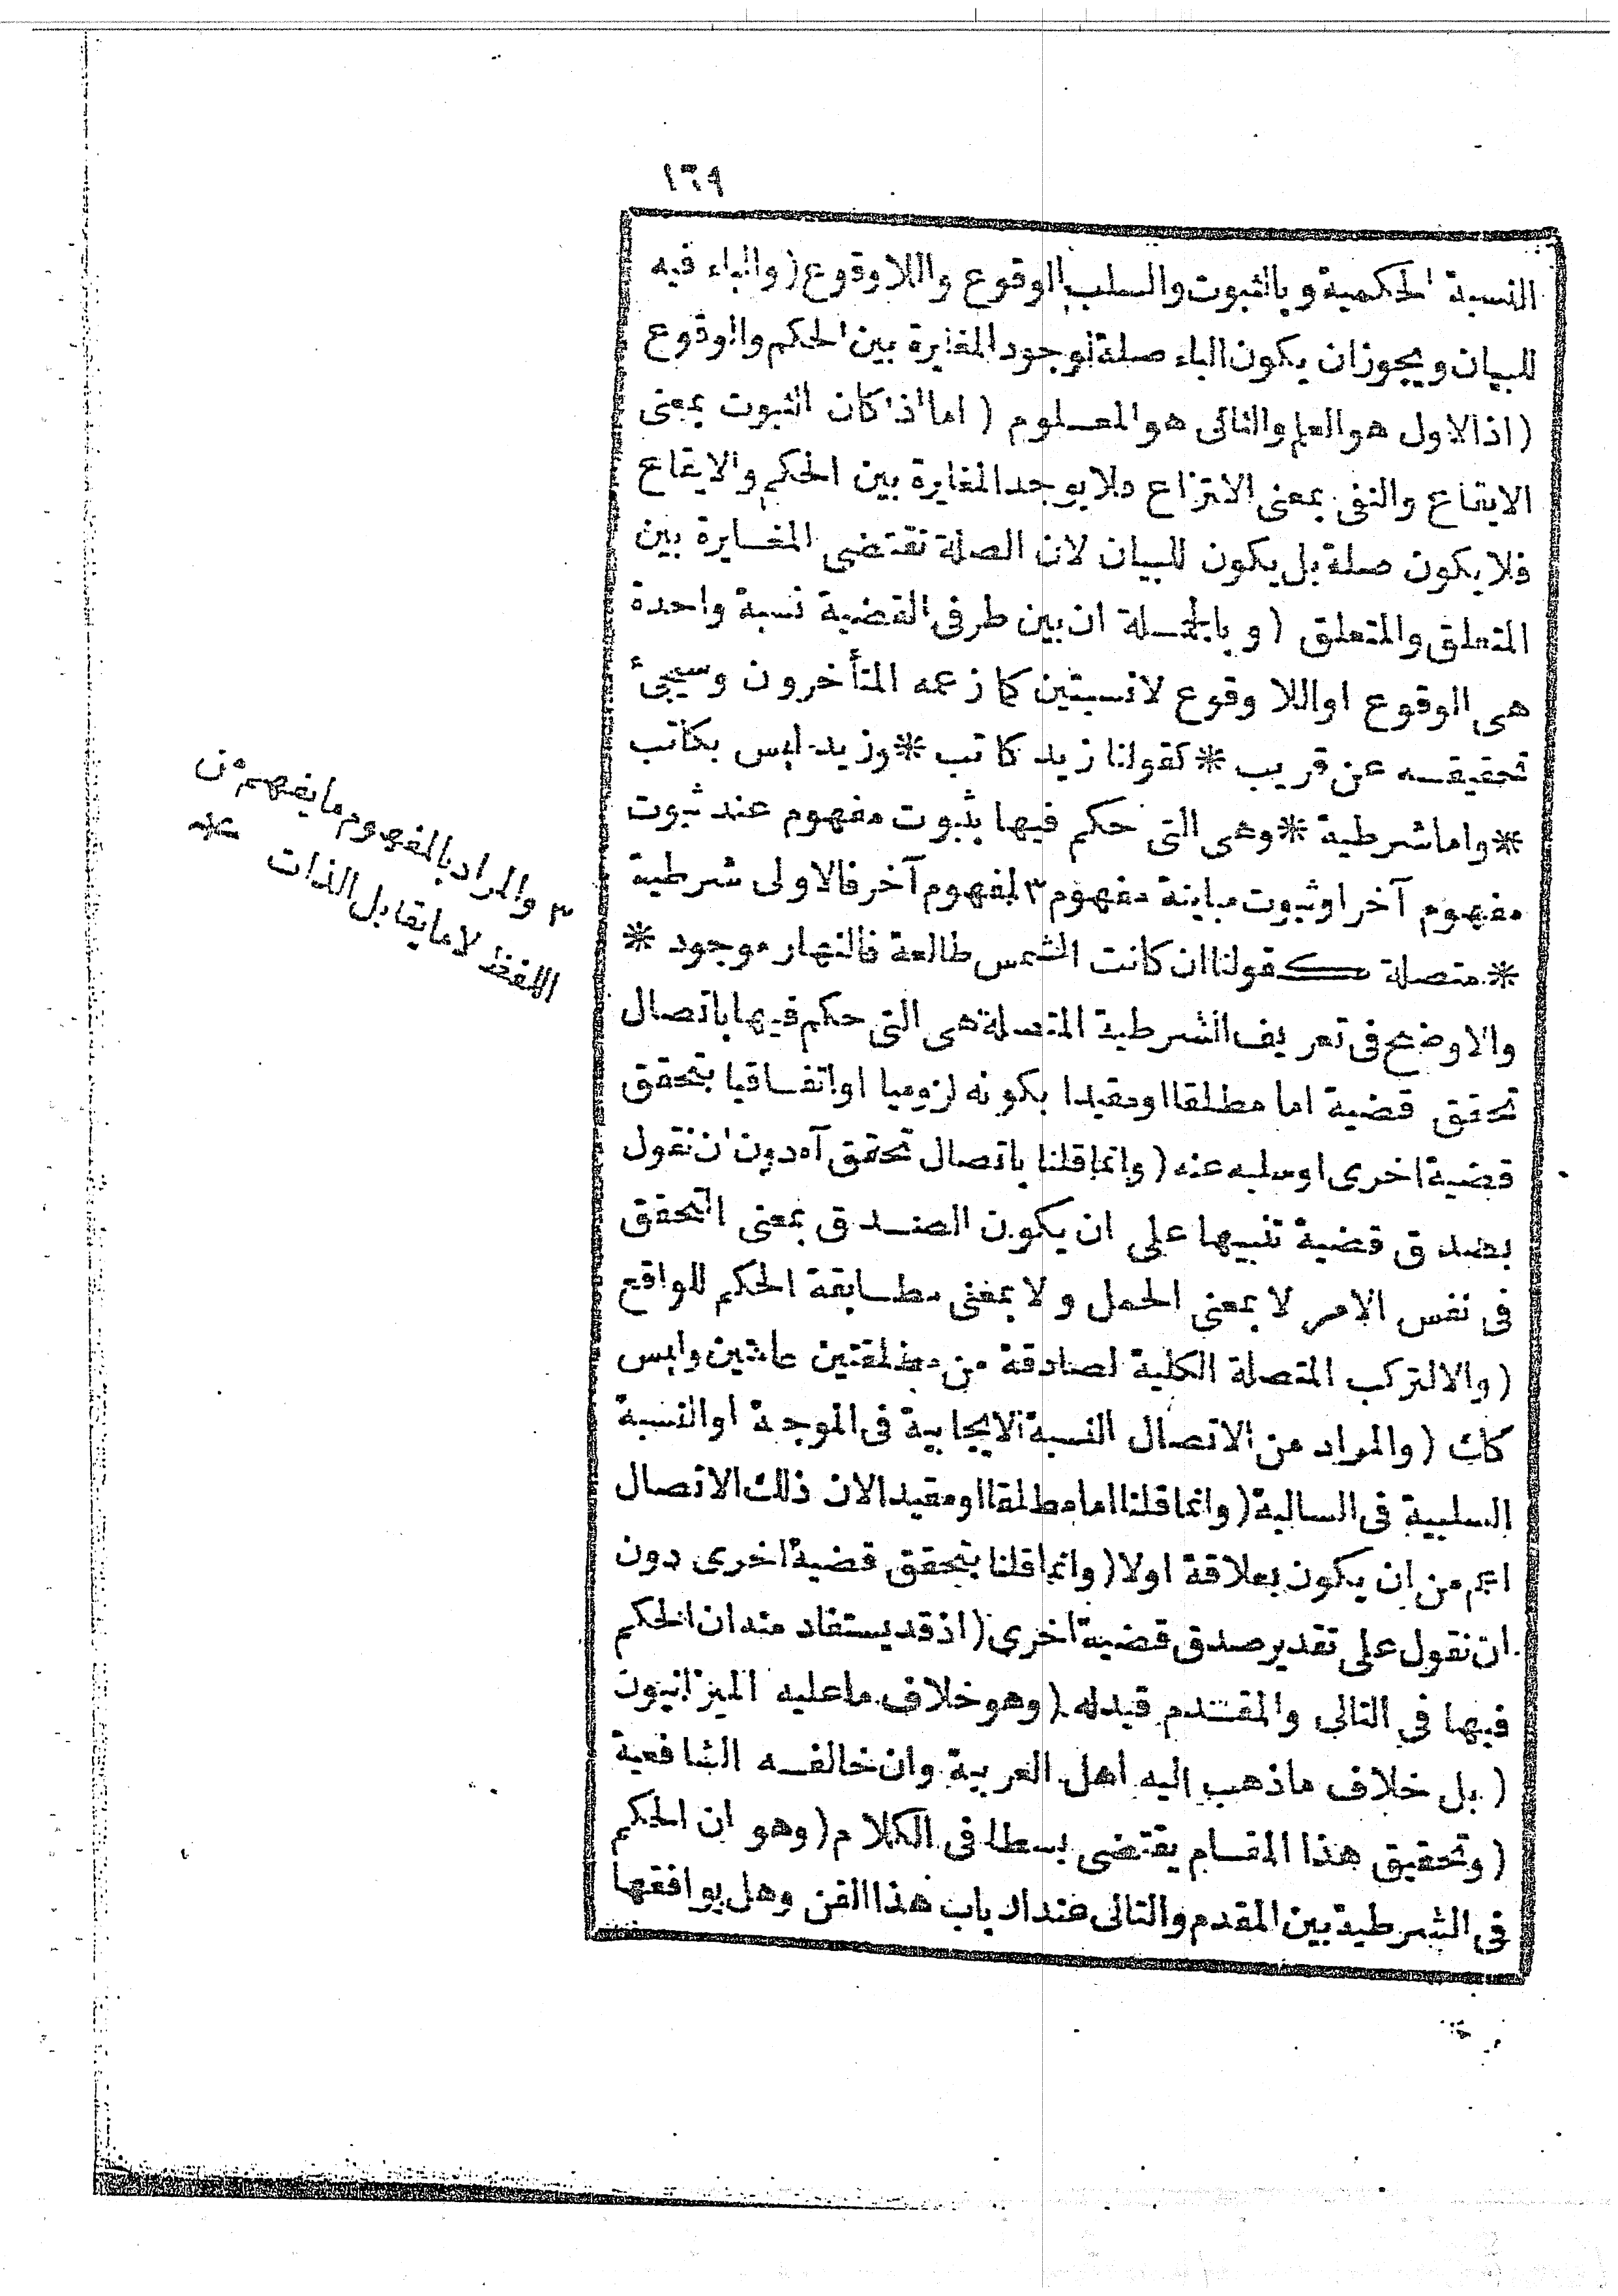 ١٦٩
النسبة الحكمية وبالثبوت والسلب الوقوع واللاوقوع (والباء فيه
للبيان ويجوز ان يكون الباء صلة لوجود المغايرة بين الحكم والوقوع
(اذ الاول هو العلم والثانى هو المعلوم (اما اذا كان الثبوت بمعنى
الايقاع والنفى بمعنى الانتزاع فلا يوجد المغايرة بين الحكم والايقاع
فلا يكون صلة بل يكون للبيان لان الصلة تقتضى المغايرة بين
المتعلق والمتعلق (وبالجملة ان بين طرفى القضية نسبة واحدة
هى الوقوع او اللا وقوع لا نسبتين كما زعمه المتأخرون وسيجئ
تحقيقه عن قريب * كقولنا زيد كاتب * وزيد ليس بكاتب
* واما شرطية * وهى التى حكم فيها بثبوت مفهوم عند ثبوت
مفهوم آخر او ثبوت مباينة مفهوم ٣ لمفهوم آخر فالاولى شرطية
* متصلة كقولنا ان كانت الشمس طالعة فالنهار موجود *
والاوضح فى تعريف الشرطية المتصلة هى التى حكم فيها باتصال
تحقق قضية اما مطلقا او مقيدا بكونه لزوميا او اتفاقيا بتحقق
قضية اخرى او سلبه عنه (وانما قلنا باتصال تحقق آه دون ان نقول
بصدق قضية تنبيها على ان يكون الصدق بمعنى التحقق
فى نفس الامر لا بمعنى الحمل ولا بمعنى مطابقة الحكم للواقع
(والا لتركب المتصلة الكلية لصادقة من مطلقتين عامتين وليس
كك (والمراد من الاتصال النسبة الايجابية فى الموجبة او النسبة
السلبية فى السالبة (وانما قلنا اما مطلقا او مقيدا لان ذلك الاتصال
اعم من ان يكون بعلاقة اولا (وانما قلنا بتحقق قضية اخرى دون
ان نقول على تقدير صدق قضية اخرى (اذ قد يستفاد منه ان الحكم
فيها فى التالى والمقدم قيد له (وهو خلاف ما عليه الميزانيون
(بل خلاف ما ذهب اليه اهل العربية وان خالفه الشافعية
(وتحقيق هذا المقام يقتضى بسطا فى الكلام (وهو ان الحكم
فى الشرطية بين المقدم والتالى عند ارباب هذا الفن وهل يوافقها
٣ والمراد بالمفهوم ما يفهم من
اللفظ لا ما يقابل الذات *